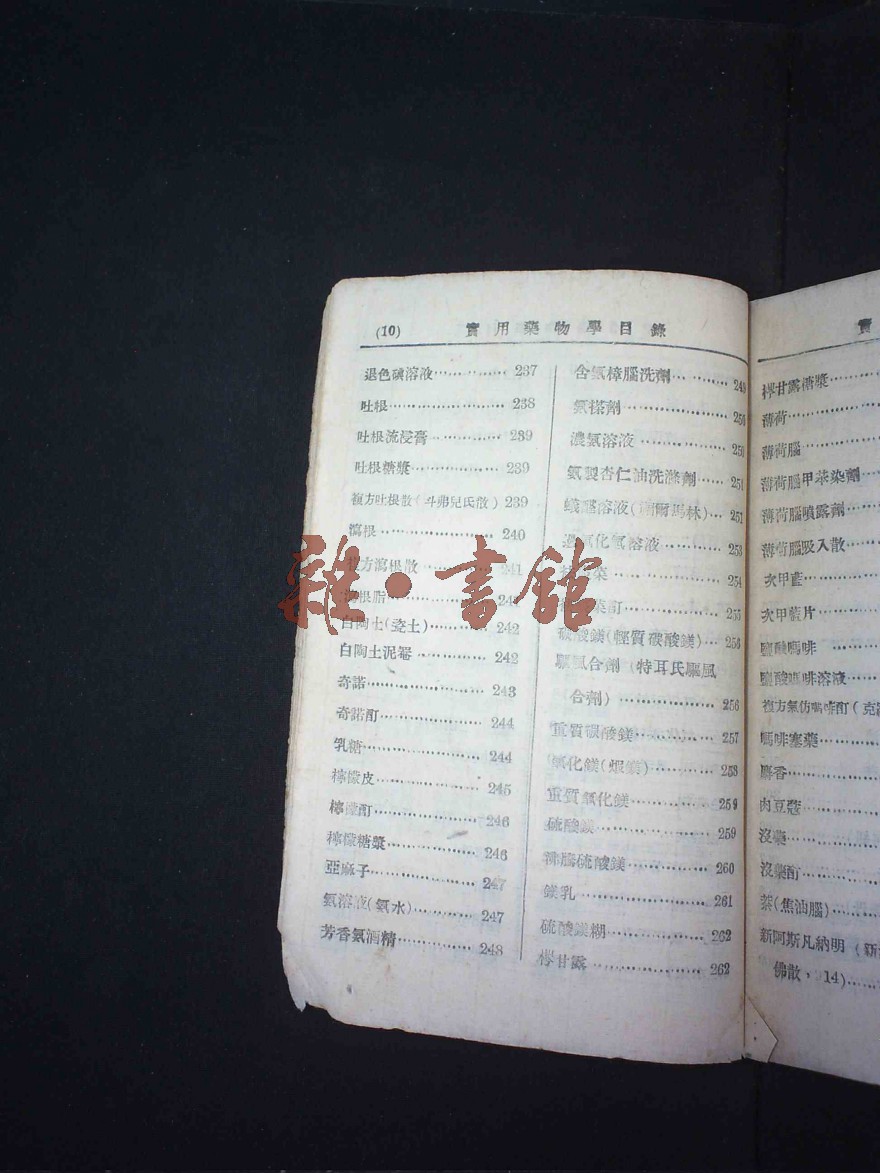 (10) 實用藥物學目錄
退色碘溶液 237
吐根 238
吐根流浸膏 239
吐根糖漿 239
複方吐根散(斗弗兒氏散) 239
瀉根 240
複方瀉根散 241
瀉根脂
白陶土(瓷土) 242
白陶土泥罨 242
奇諾 243
奇諾酊 244
乳糖 244
檸檬皮 245
檸檬酊 246
檸檬糖漿 246
亞麻子 247
氨溶液(氨水) 247
芳香氨酒精 248
含氨樟腦洗劑 249
氨搽劑 250
濃氨溶液 250
氨製杏仁油洗滌劑 251
蟻醛溶液(福爾馬林) 251
過氧化氫溶液 253
菜 254
255
碳酸鎂(輕質碳酸鎂) 256
驅風合劑(特耳氏驅風
合劑) 256
重質碳酸鎂 257
氧化鎂(煆鎂) 258
重質氧化鎂 259
硫酸鎂 259
沸騰硫酸鎂 260
鎂乳 261
硫酸鎂糊 262
樗甘露 262
實
樗甘露糖漿
薄荷
薄荷腦
薄荷腦甲萊染劑
薄荷腦噴霧劑
薄荷腦吸入散
次甲藍
次甲藍片
鹽酸嗎啡
鹽酸嗎啡溶液
複方氯仿嗎啡酊(克
嗎啡塞藥
麝香
肉豆蔻
沒藥
沒藥酊
萘(焦油腦)
新阿斯凡納明(新
佛散,14)
雜·書館